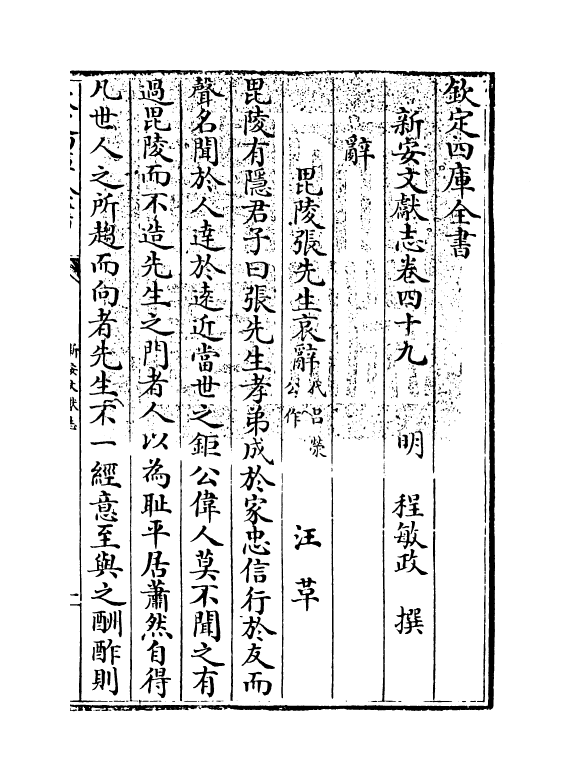 欽定四庫全書
新安文獻志卷四十九　明　程敏政　撰
辭
毘陵張先生哀辭代呂滎公作　汪革
毘陵有隱君子曰張先生孝弟成於家忠信行於友而
聲名聞於人達於遠近當世之鉅公偉人莫不聞之有
過毘陵而不造先生之門者人以為恥平居蕭然自得
凡世人之所趨而向者先生不一經意至與之酬酢則
新安文獻志